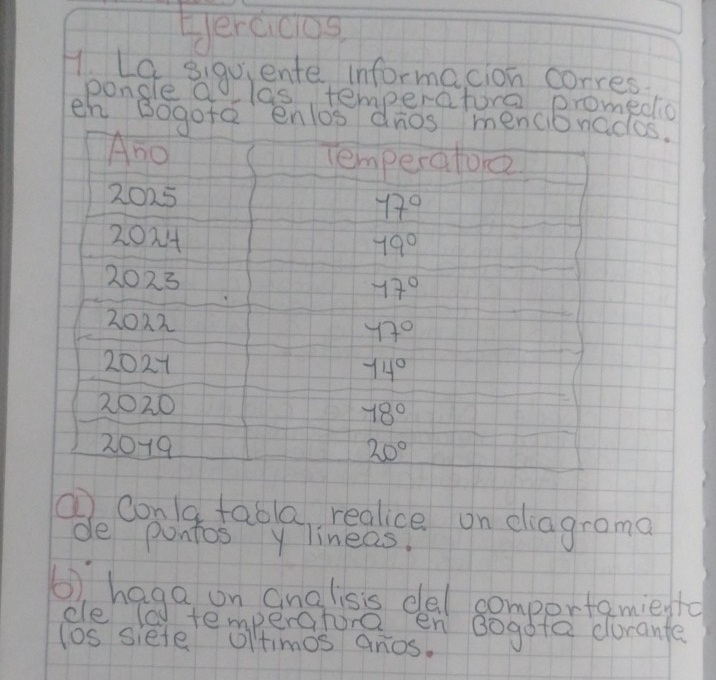 Ejercicios
1. La siguiente informacion corres-
ponde a las temperatura promedio
en Bogotá en los años mencionados.
Año Temperatura
2025 17°
2024 19°
2023 17°
2022 17°
2021 14°
2020 18°
2019 20°
a) con la tabla, realice un diagrama
de puntos y lineas.
b) haga un analisis del comportamiento
de la temperatura en Bogotá durante
los siete ultimos años.